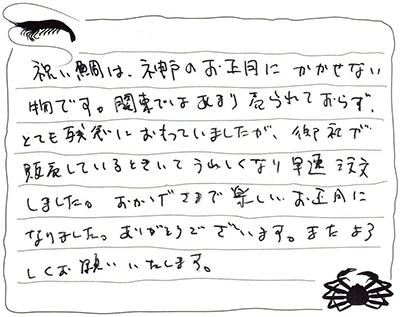 祝い鯛は、神戸のお正月に かかせない
物です。関東ではあまり売られておらず、
とても残念におもっていましたが、御社が
販売しているときいて うれしくなり 早速 注文
しました。 おかげさまで楽しいお正月に
なりました。ありがとうございます。またよろ
しくお願いいたします。